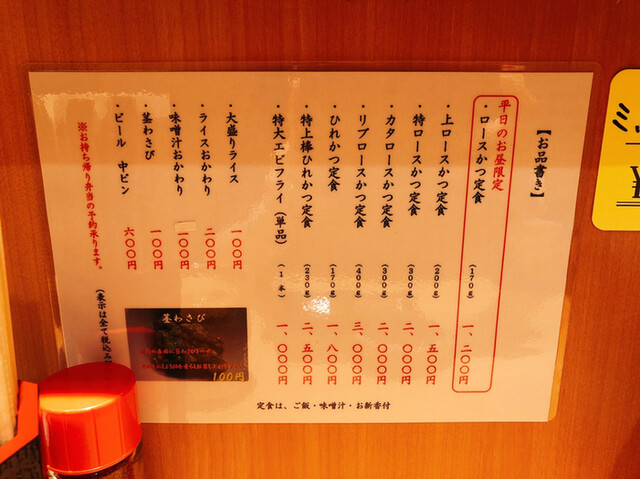 【お品書き】
平日のお昼限定
・ロースかつ定食 (170g) 一、二〇〇円
・上ロースかつ定食 (200g) 一、五〇〇円
・特ロースかつ定食 (300g) 二、〇〇〇円
・カタロースかつ定食 (300g) 二、〇〇〇円
・リブロースかつ定食 (400g) 三、〇〇〇円
・ひれかつ定食 (170g) 一、八〇〇円
・特上棒ひれかつ定食 (230g) 二、五〇〇円
・特大エビフライ(単品) (1本) 一、〇〇〇円
・大盛りライス 一〇〇円
・ライスおかわり 二〇〇円
・味噌汁おかわり 一〇〇円
・茎わさび 一〇〇円
・ビール 中ビン 六〇〇円
※お持ち帰り弁当の予約承ります。
(表示は全て税込み)
茎わさび
100円
定食は、ご飯・味噌汁・お新香付
ミ
¥